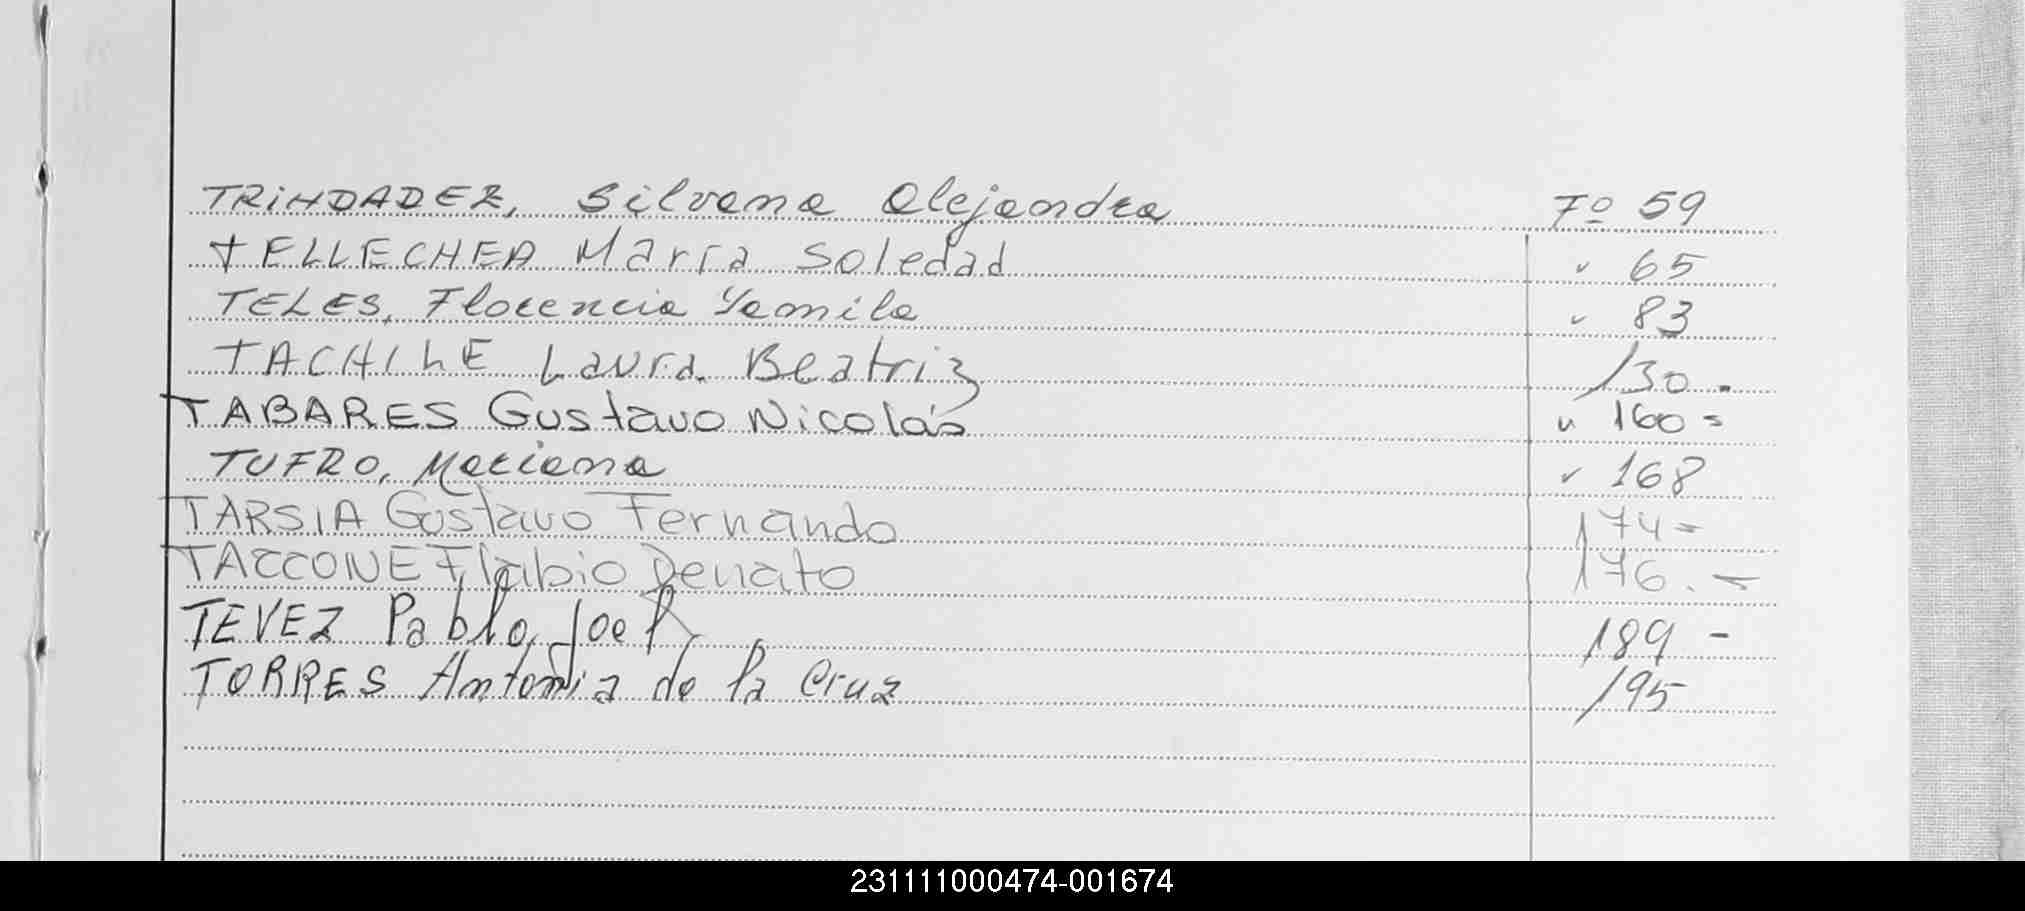 TRINDADEZ, Silvana Alejandra Fº 59
TELLECHEA María Soledad " 65
TELES, Florencia Yamila " 83
TACHILE Laura Beatriz 130.
TABARES Gustavo Nicolás " 160=
TUFRO, Mariana " 168
TARSIA Gustavo Fernando 174=
TACCONE Flabio Denato 176.-
TEVEZ Pablo Joel 189 -
TORRES Antonia de la Cruz 195
231111000474-001674